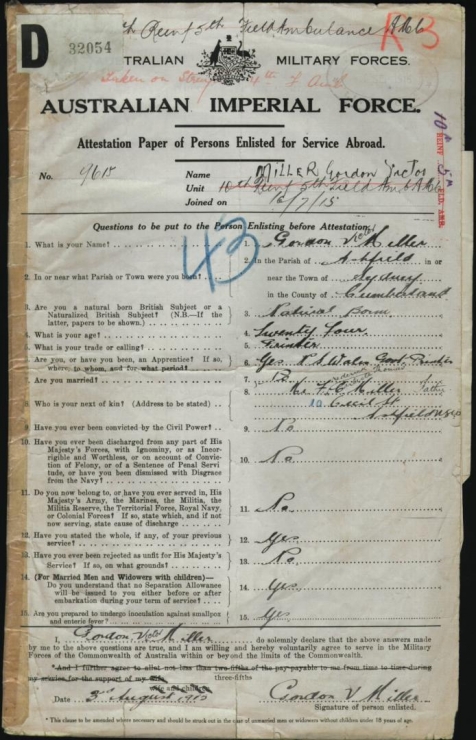 Reinf 5th Field Ambulance AMC
D 32054
R 3
TRALIAN MILITARY FORCES.
Taken on Streng 4th of Aug
AUSTRALIAN IMPERIAL FORCE.
Attestation Paper of Persons Enlisted for Service Abroad.
No. 9615 Name MILLER Gordon Victor
Unit 10th Reinf 5th Field Amb AMC
Joined on 16/7/15
10th REINF 5TH FLD. AMB.
43
Questions to be put to the Person Enlisting before Attestation.
1. What is your Name? 1. Gordon Victor Miller
2. In or near what Parish or Town were you born? 2. In the Parish of Ashfield in or
near the Town of Sydney
in the County of Cumberland
3. Are you a natural born British Subject or a
Naturalized British Subject? (N.B.—If the
latter, papers to be shown.) 3. Natural Born
4. What is your age? 4. Twenty Four
5. What is your trade or calling? 5. Printer
6. Are you, or have you been, an Apprentice? If so,
where, to whom, and for what period? 6. Yes Govt. Printer
7. Are you married? 7. No
8. Who is your next of kin? (Address to be stated) 8. Miller Father
10 Cecil St
Ashfield NSW
9. Have you ever been convicted by the Civil Power? 9. No
10. Have you ever been discharged from any part of His
Majesty's Forces, with Ignominy, or as Incor-
rigible and Worthless, or on account of Convic-
tion of Felony, or of a Sentence of Penal Servi-
tude, or have you been dismissed with Disgrace
from the Navy? 10. No
11. Do you now belong to, or have you ever served in, His
Majesty's Army, the Marines, the Militia, the
Militia Reserve, the Territorial Force, Royal Navy,
or Colonial Forces? If so, state which, and if not
now serving, state cause of discharge 11. No
12. Have you stated the whole, if any, of your previous
service? 12. Yes
13. Have you ever been rejected as unfit for His Majesty's
Service? If so, on what grounds? 13. No.
14. (For Married Men and Widowers with children)—
Do you understand that no Separation Allowance
will be issued to you either before or after
embarkation during your term of service? 14. Yes
15. Are you prepared to undergo inoculation against smallpox
and enteric fever? 15. Yes
I, Gordon Victor Miller do solemnly declare that the above answers made
by me to the above questions are true, and I am willing and hereby voluntarily agree to serve in the Military
Forces of the Commonwealth of Australia within or beyond the limits of the Commonwealth.
*And I further agree to allot not less than two-fifths of the pay payable to me from time to time during
three-fifths
my service for the support of my wife
wife and children.
Date 3rd August 1915 Gordon V Miller
Signature of person enlisted.
* This clause to be amended where necessary and should be struck out in the case of unmarried men or widowers without children under 18 years of age.